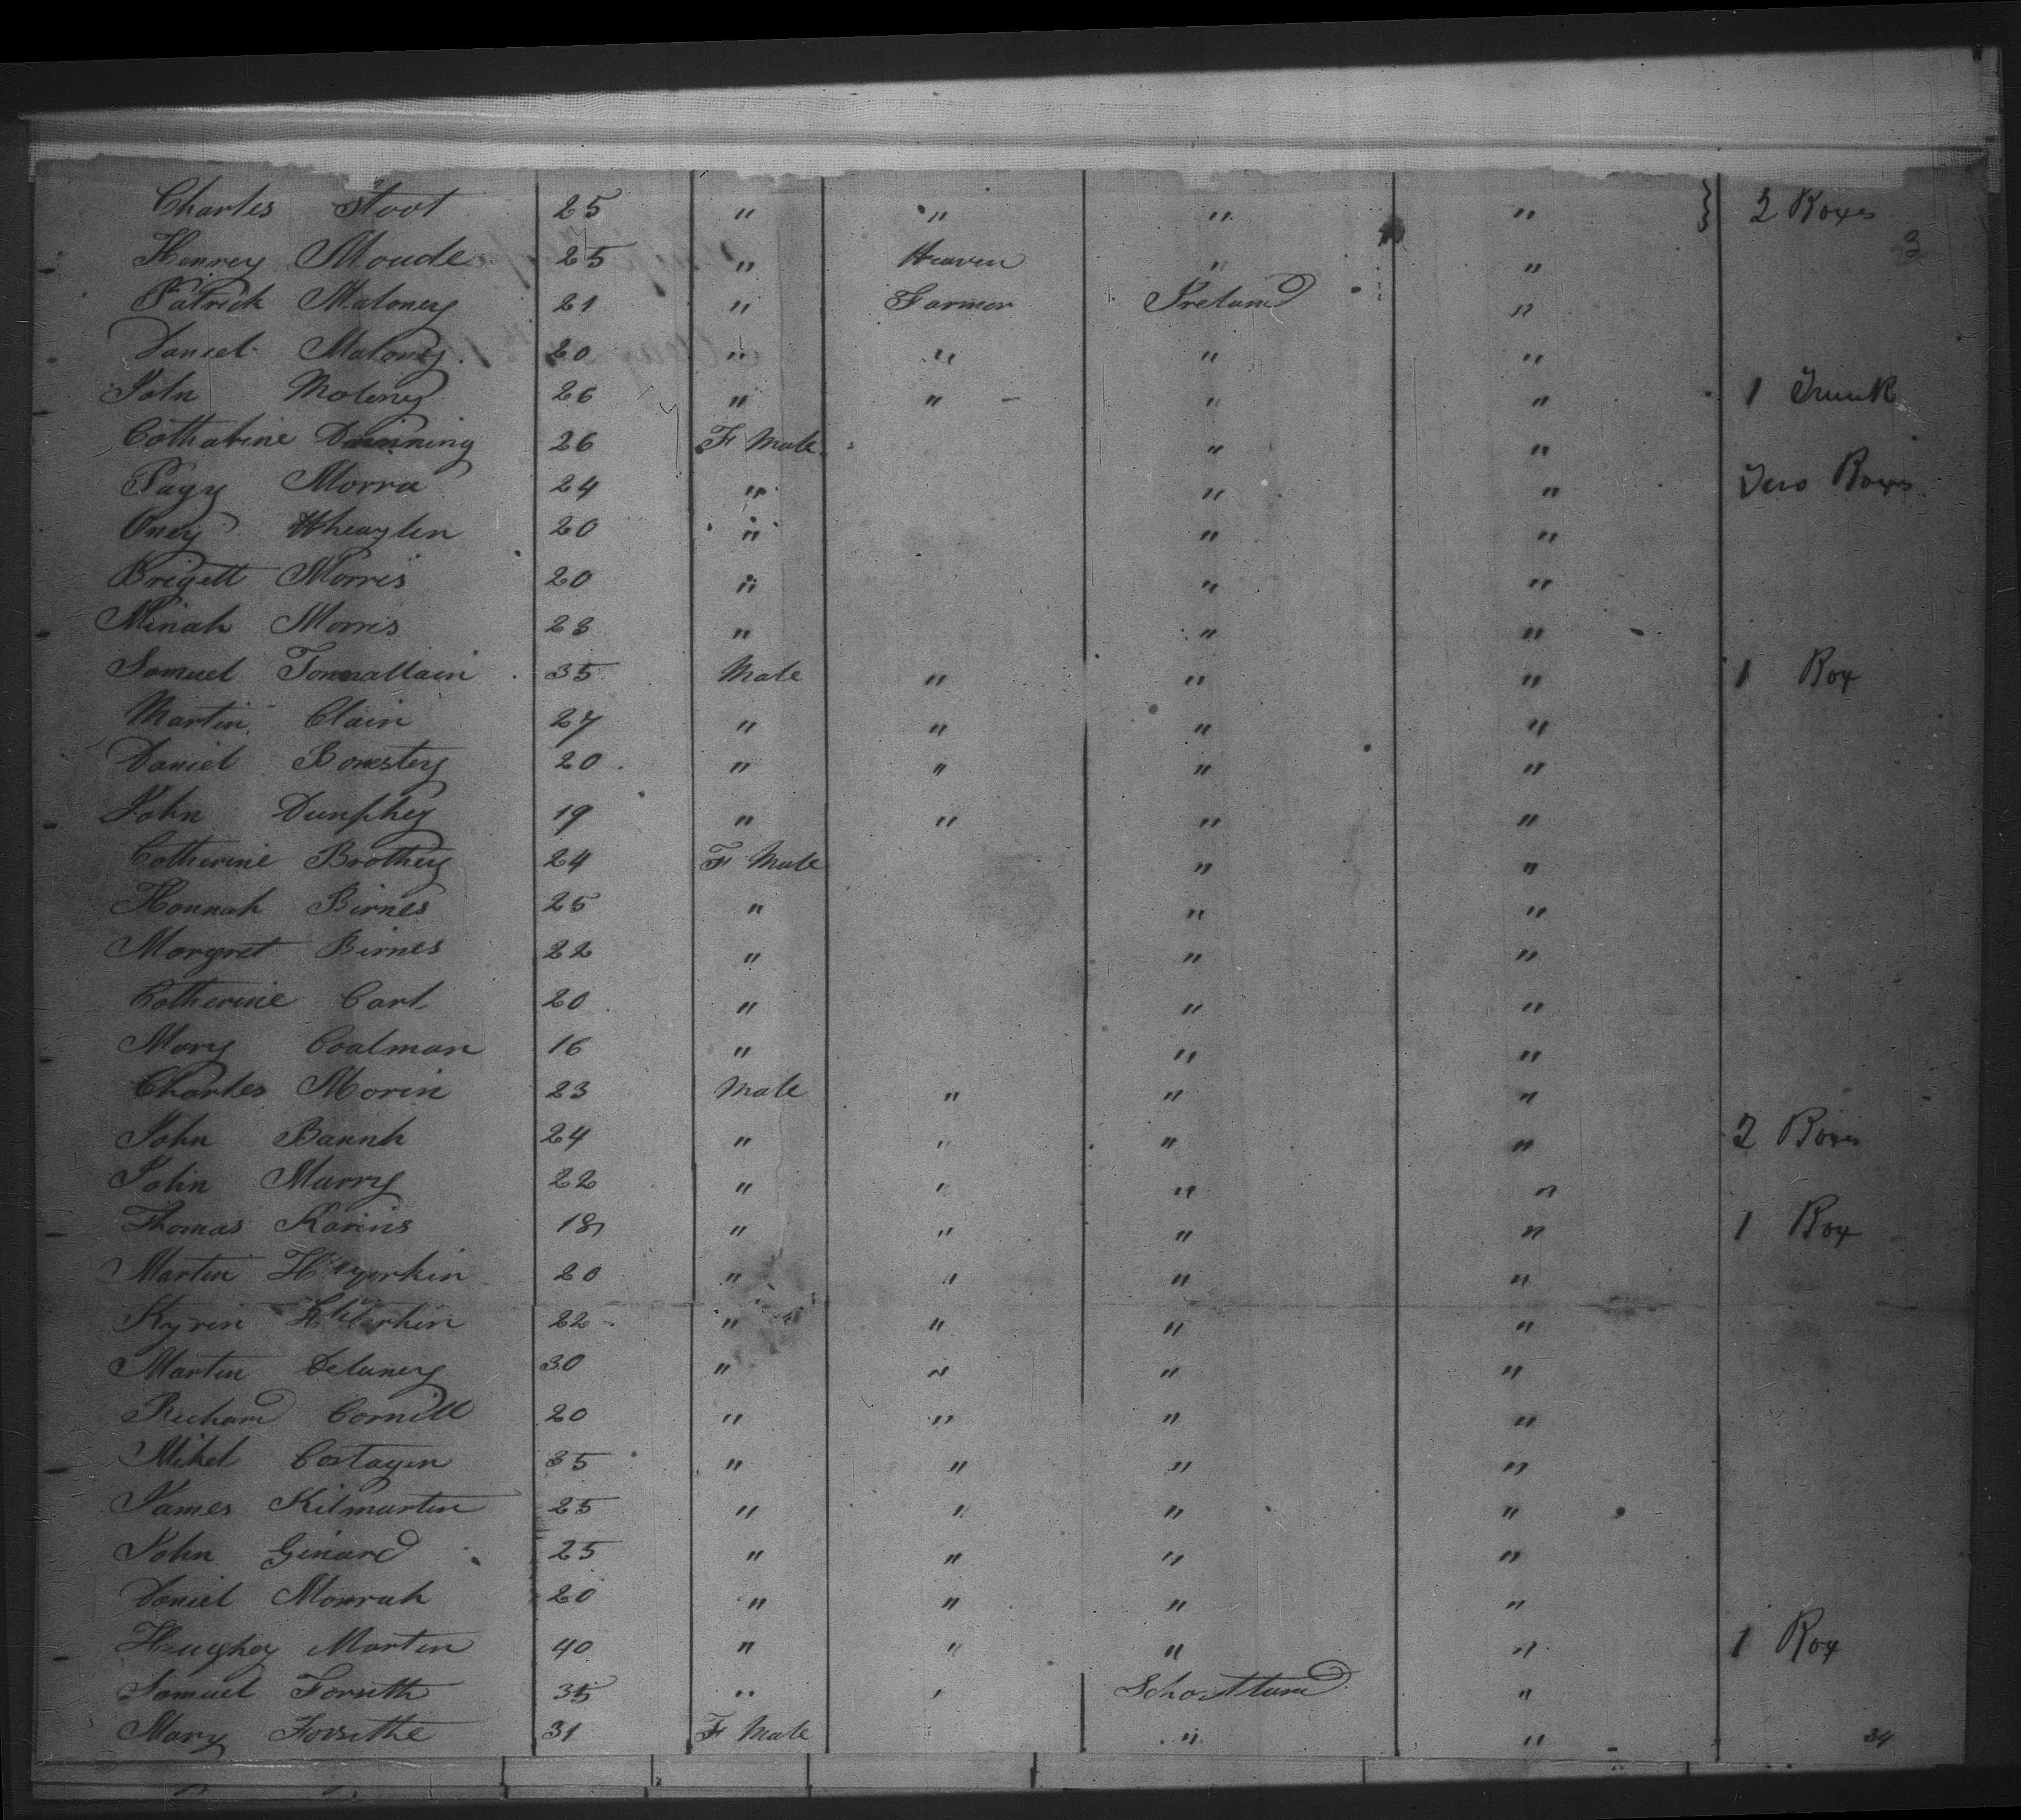 Charles Stoot 25 " " " " } 2 Boxes
3
Henrey Moude 25 " Weaver " "
Patrick Maloney 21 " Farmer Ireland "
Daniel Maloney 20 " " " "
John Moloney 26 " " - " " 1 Trunk
Cotharine Dunning 26 F Male " "
Pagy Morra 24 " " " Two Boxes
Oney Wheaylen 20 " " "
Brigett Morris 20 " " "
Minah Morris 23 " " "
Samuel 35 Male " " " 1 Box
Martin Clain 27 " " " "
Daniel 20 " " " "
John Dunphey 19 " " " "
Cotherine Brothey 24 F Male " "
Honnah Birnes 25 " " "
Morgret Birnes 22 " " "
Cotherine Carl 20 " " "
Mary Coalman 16 " " "
Charles Morin 23 Male " " "
John 24 " " " " 2 Boxes
John Murry 22 " " " "
Thomas Karins 18 " " " " 1 Box
Martin 20 " " " "
Kyren 22 " " " "
Martin Delaney 30 " " " "
Richard Cornill 20 " " " "
Mikel Costagen 35 " " " "
James Kilmartin 25 " " " "
John Ginard 25 " " " "
Daniel Morrah 20 " " " "
Heughey Martin 40 " " " " 1 Box
Samuel Forsith 35 " " Schottland "
Mary Forsithe 31 F Male " "
34